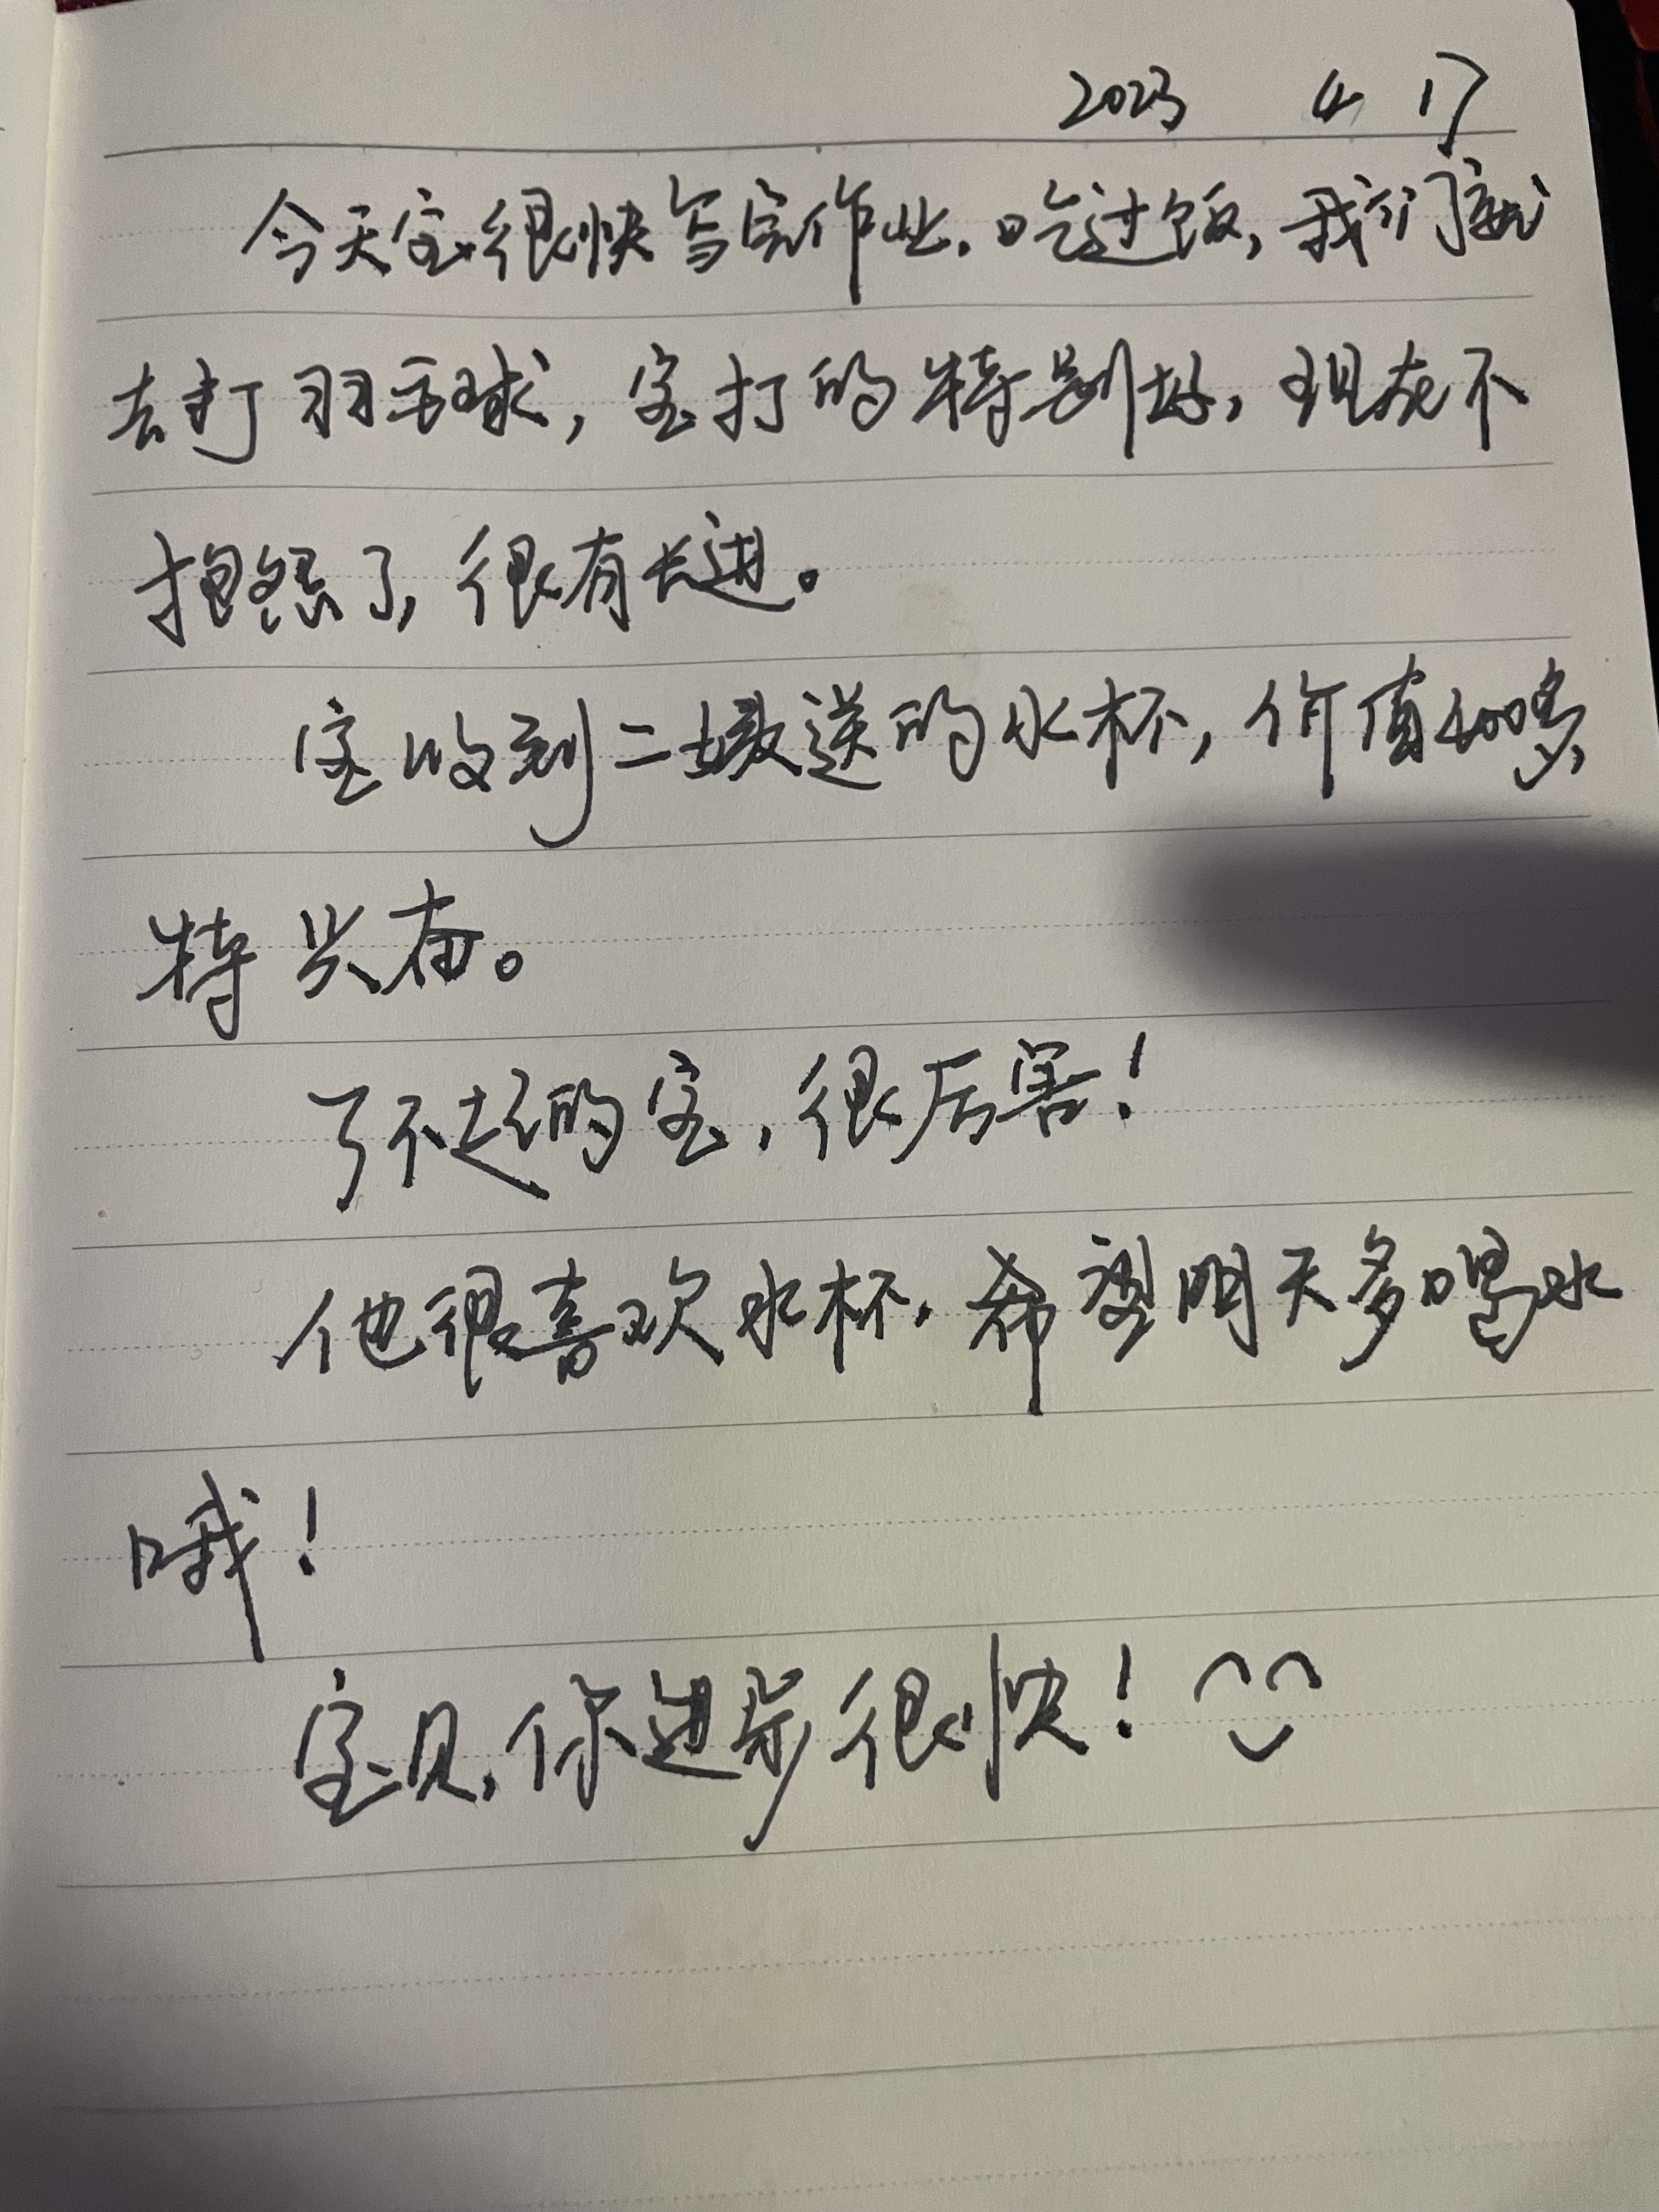 2023 4 17
今天宝很快写完作业,吃过饭,我们就
去打羽毛球,宝打的特别好,现在不
抱怨了,很有长进。
宝收到二嫂送的水杯,价值400多,
特兴奋。
了不起的宝,很厉害!
他很喜欢水杯,希望明天多喝水
哦!
宝贝,你进步很快!